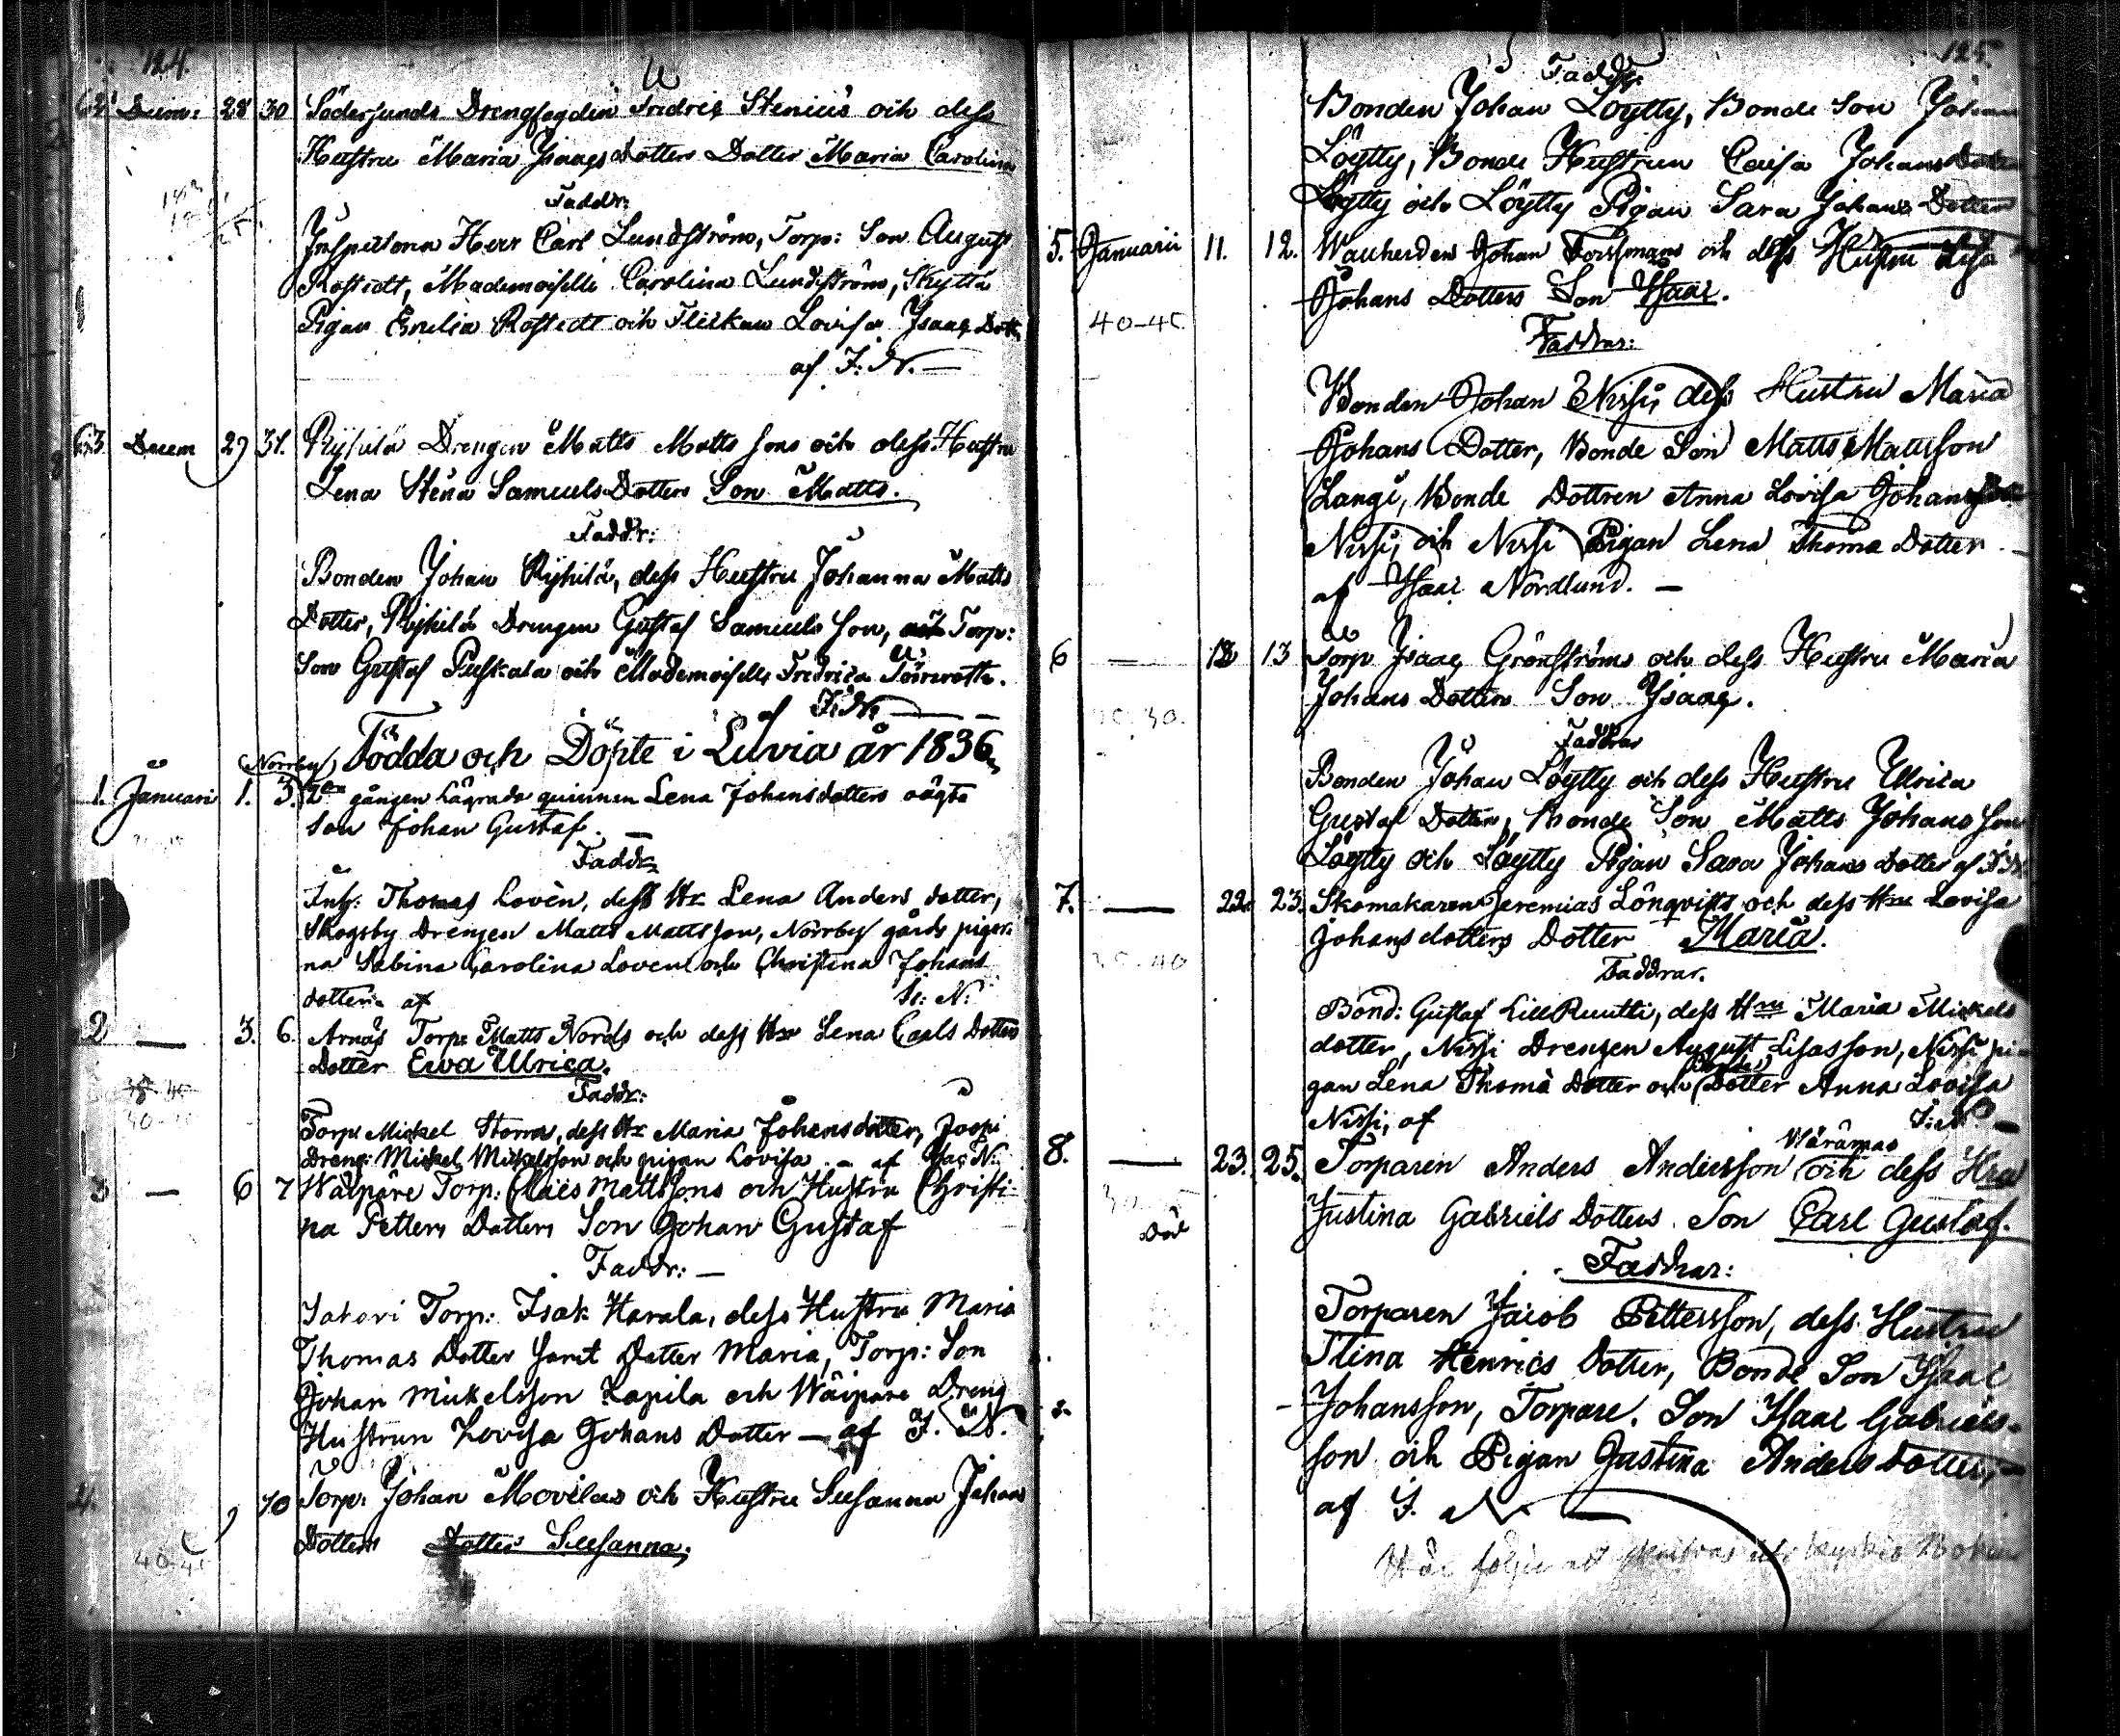 124.
62 Decm: 28 30 Södersunds Drengfogden Fredric Stenius och dess
Hustru Maria Isaacs Dotters Dotter Maria Carolina
Faddr:
Inspectoren Herr Carl Lundström, Torp: Son August
Rostedt, Mademoiselle Carolina Lundström, Skyttä
Pigan Emelia Rostedt och Flickan Lovisa Isaacs Dott:
af I. N. —
63 Decem 29 31. Ryhilä Drengen Matts Matts sons och dess Hustru
Lena Stina Samuels Dotters Son Matts.
Faddr:
Bonden Johan Ryhilä, dess Hustru Johanna Matts
Dotter, Ryhilä Drengen Gustaf Samuels son, Torp:
Son Gustaf Puskala och Mademoiselle Fredrica Törnroth.
af I. N. —
Födda och Döpte i Luvia år 1836
Norrby
1. Januari 1. 3. 2dra gången lägrade quinnan Lena Johansdotters oägta
Son Johan Gustaf. —
Faddr:
Insp: Thomas Lovén, dess Hr Lena Anders dotter,
Skogsby Drengen Matts Mattsson, Norrby gårds pigor-
na Sabina Carolina Loven och Christina Johans
dotter. af Is: N:
2 — 3. 6. Arnäs Torp: Matts Nords och dess Hr Lena Carls Dotters
Dotter Ewa Ulrica.
30-40
Faddr:
Torp: Mickel Storra, dess Hr Maria Johansdotter, Joopi
Dreng: Mickel Mickelsson och pigan Lovisa — af Isac N:
3 — 6 7 Wäipäre Torp: Claes Mattssons och Hustru Christi-
na Petters Dotters Son Johan Gustaf
Faddr: —
Satori Torp: Isak Harala, dess Hustru Maria
Thomas Dotter samt Dotter Maria, Torp: Son
Johan Mickelsson Lapila och Wäipäre Dreng
Hustrun Lovisa Johans Dotter — af I. N.
4. 9 10 Torp: Johan Movilas och Hustru Susanna Johans
Dotters Dotter Susanna.
40-45
125.
Faddr:
Bonden Johan Löytty, Bonde Son Johan
Löytty, Bonde Hustrun Caisa Johans Dotter
Löytty och Löytty Pigan Sara Johans Dotter
5. Januarii 11. 12. Johan Forssmans och dess Hustru Lisa
Johans Dotters Son Isaac.
40-45
Faddrar:
Bonden Johan Nissi, dess Hustru Maria
Johans Dotter, Bonde Son Matts Mattsson
Langi, Bonde Dottren Anna Lovisa Johans
Nissi, och Nissi Pigan Lena Thoma Dotter. —
af Isaac Nordlund. —
6 — 12 13 Torp Isaac Grönströms och dess Hustru Maria
Johans Dotters Son Isaac.
30.
Faddrar
Bonden Johan Löytty och dess Hustru Ulrica
Gustaf Dotter, Bonde Son Matts Johans son
Löytty och Löytty Pigan Sara Johans Dotter af I. N.
7. — 22. 23. Skomakaren Jeremias Lönqvists och dess Hru Lovisa
Johansdotters Dotter Maria.
35-40
Faddrar.
Bond: Gustaf Lill Ruutti, dess Hru Maria Mickels
dotter, Nissi Drengen August Esasson, Nissi pi-
gan Lena Thoma Dotter och Bonde Dotter Anna Lovisa
Nissi, af I: N: —
Wärämas
8. — 23. 25. Torparen Anders Andersson och dess Hru
Justina Gabriels Dotters Son Carl Gustaf.
Död
Faddrar:
Torparen Jacob Pettersson, dess Hustru
Stina Henrics Dotter, Bonde Son Isaac
Johansson, Torpare Son Isaac Gabriels-
son och Pigan Justina Anders Dotter, —
af I. N.